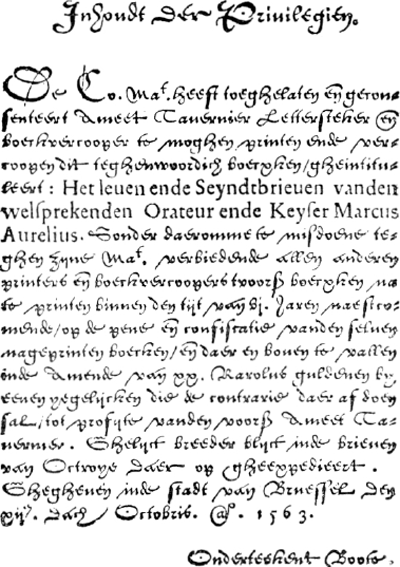 Inhoudt der Privilegien.
De Co. Mat. heeft toeghelaten eñ gecon-
senteert Ameet Tavernier Lettersteker eñ
boeckvercooper te moghen printen ende ver-
coopen dit teghenwoordich boecxken / gheintitu-
leert : Het leuen ende Seyndtbrieuen vanden
welsprekenden Orateur ende Keyser Marcus
Aurelius. Sonder daeromme te misdoene te-
ghen zijne Mat. verbiedende allen anderen
printers eñ boeckvercoopers tvoorß boecxken na
te printen binnen den tijt van vj. Jaren naestco-
mende / op de pene eñ confiscatie vanden seluen
nageprinten boecken / eñ daer en bouen te vallen
inde Amende van xx. Karolus guldenen by
eenen yegelijcken die de contrarie daer af doen
sal / tot profijte vanden voorß Ameet Ta-
vernier. Ghelijck breeder blijct inde brieuen
van Octroye daer op gheexpedieert.
Ghegheuen inde stadt van Bruessel den
xij. dach Octobris. Aº. 1563.
Onderteekent Boote.